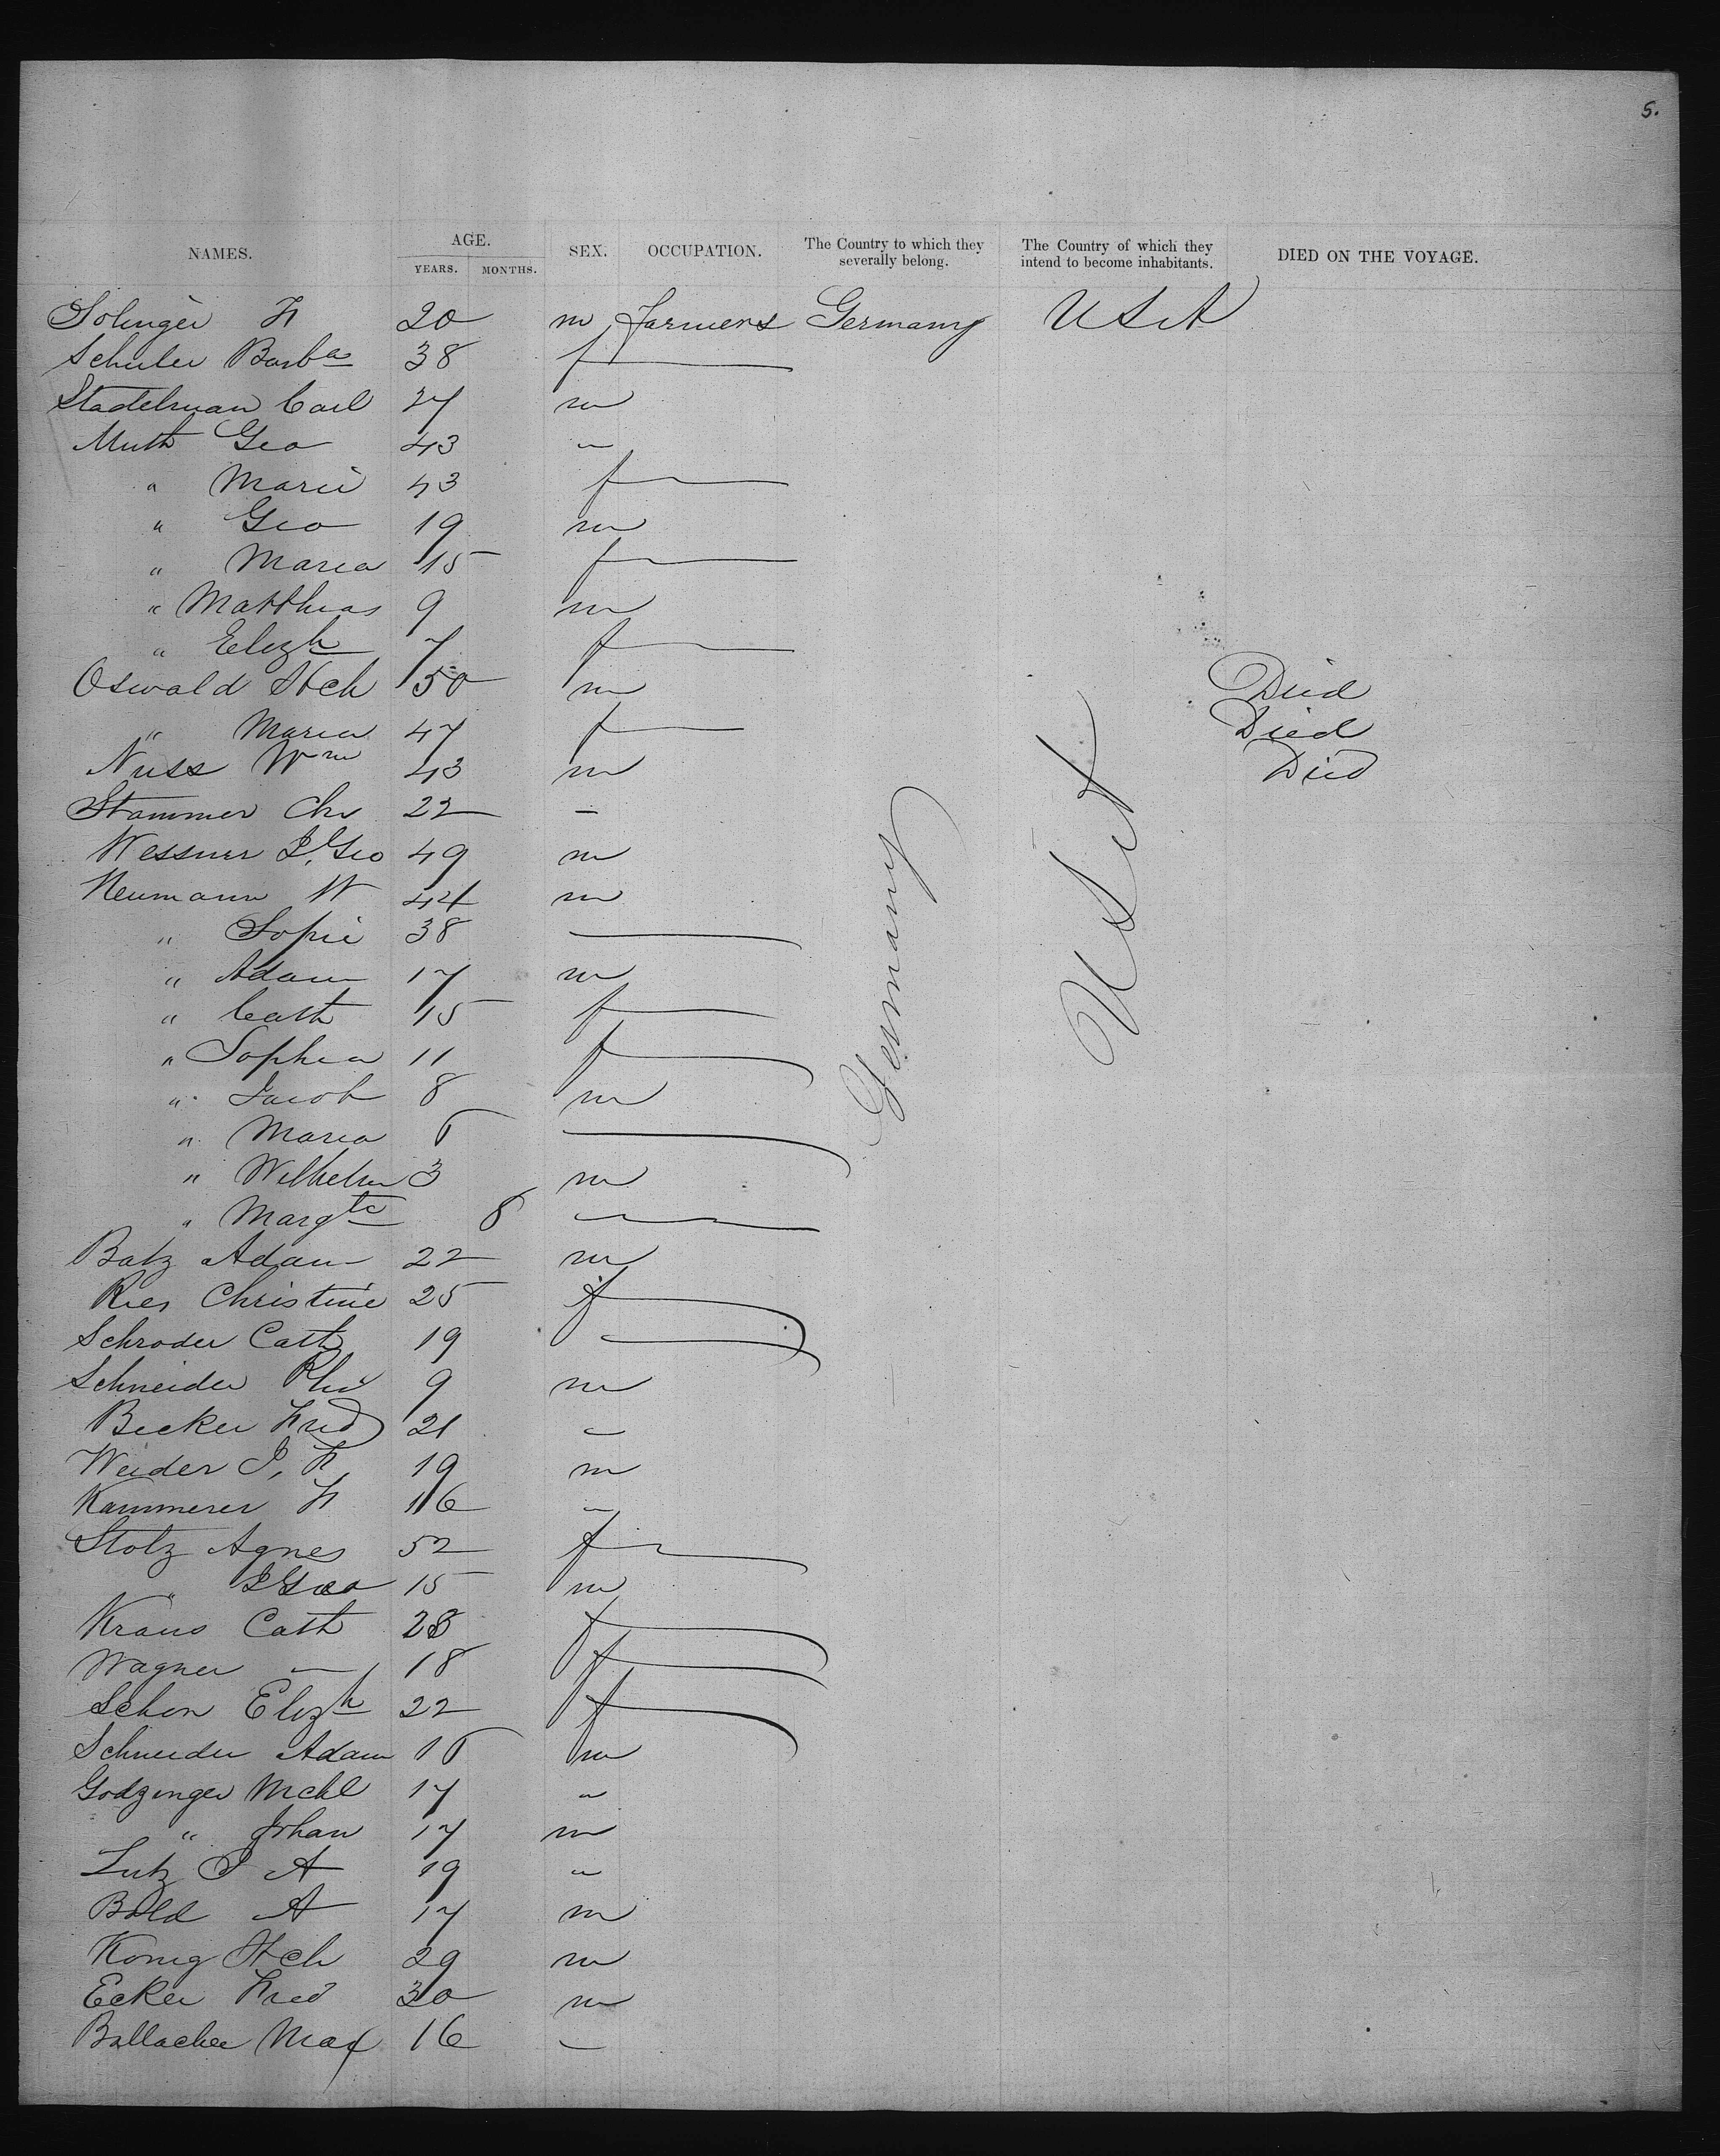 5.
NAMES. AGE. YEARS. MONTHS. SEX. OCCUPATION. The Country to which they severally belong. The Country of which they intend to become inhabitants. DIED ON THE VOYAGE.
Solinger H 20 m Farmers Germany USA
Schuler Barba 38 f
Stadelman Carl 27 m
Muth Geo 43 "
" Marie 43 f
" Geo 19 m
" Maria 15 f
" Matthias 9 m
" Elizh 7 f
Oswald Hch 50 m Died
" Maria 47 f Died
Nuss Wm 43 m Died
Stammer Chr 22 —
Wessner J. Geo 49 m
Neumann W 44 m
" Sopie 38 —
" Adam 17 m
" Cath 15 f
" Sophia 11 f
" Jacob 8 m
" Maria 6 —
" Wilhelm 3 m
" Margte 8 —
Batz Adam 22 m
Ries Christine 25 f
Schroder Cath 19 —
Schneider Phi 9 m
Becker Fred 21 "
Weider J. F. 19 m
Kammerer F 16 "
Stolz Agnes 52 f
" J Geo 15 m
Kraus Cath 28 f
Wagner " 18 f
Schon Elizh 22 f
Schneider Adam 16 m
Godzinger Mchl 17 "
" Johan 17 m
Lutz J A 19 "
Bold A 17 m
Konig Hch 29 m
Ecker Fred 30 m
Ballacher Max 16 "
Germany
USA